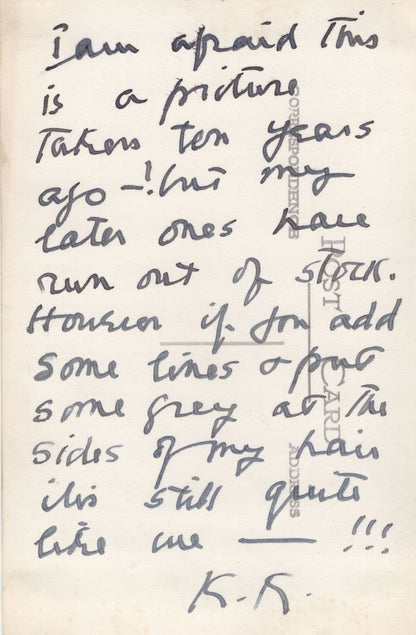 I am afraid this
is a picture
taken ten years
ago —! but my
later ones have
run out of stock.
However if you add
some lines & put
some grey at the
sides of my hair
it is still quite
like me — !!!
K.K.
CORRESPONDENCE
POST CARD
ADDRESS